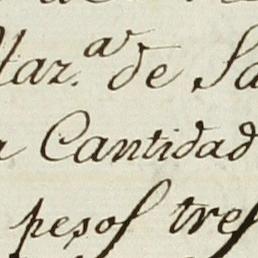 taz.ª de Sa
a Cantidad
pesos tres